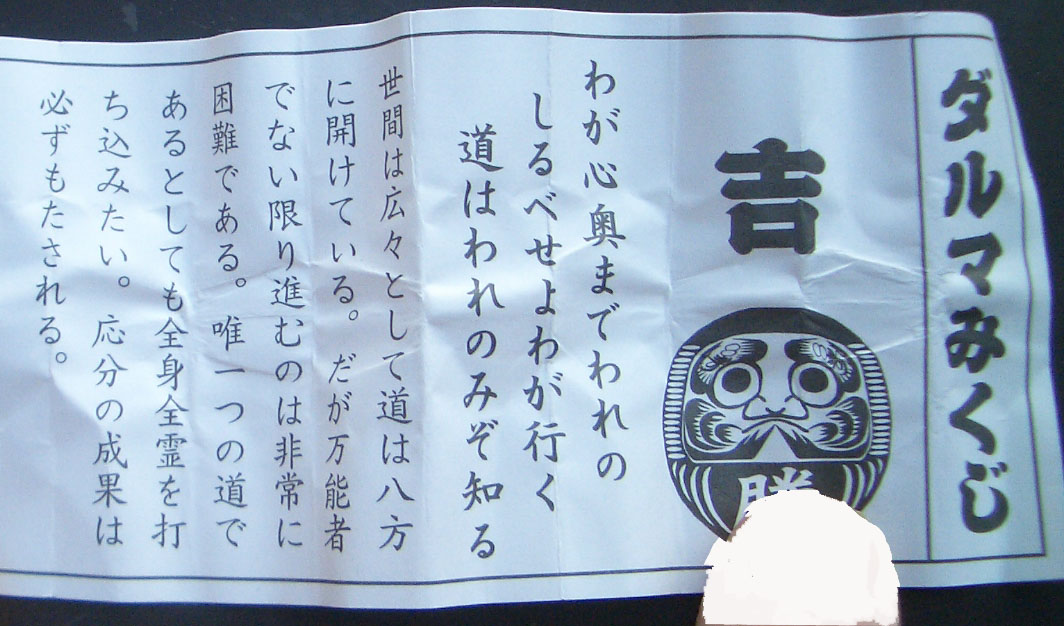 ダルマみくじ
吉
勝
わが心奥までわれの
しるべせよわが行く
道はわれのみぞ知る
世間は広々として道は八方
に開けている。だが万能者
でない限り進むのは非常に
困難である。唯一つの道で
あるとしても全身全霊を打
ち込みたい。応分の成果は
必ずもたされる。